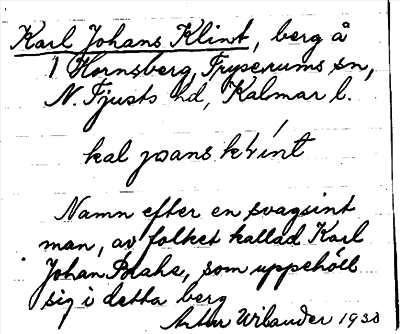 Karl Johans Klint, berg å
1 Hornsberg, Tryserums sn,
N. Tjusts hd, Kalmar l.
kal joans klínt
Namn efter en svagsint
man, av folket kallad Karl
Johan Brahe, som uppehöll
sig i detta berg
Wilander 1933